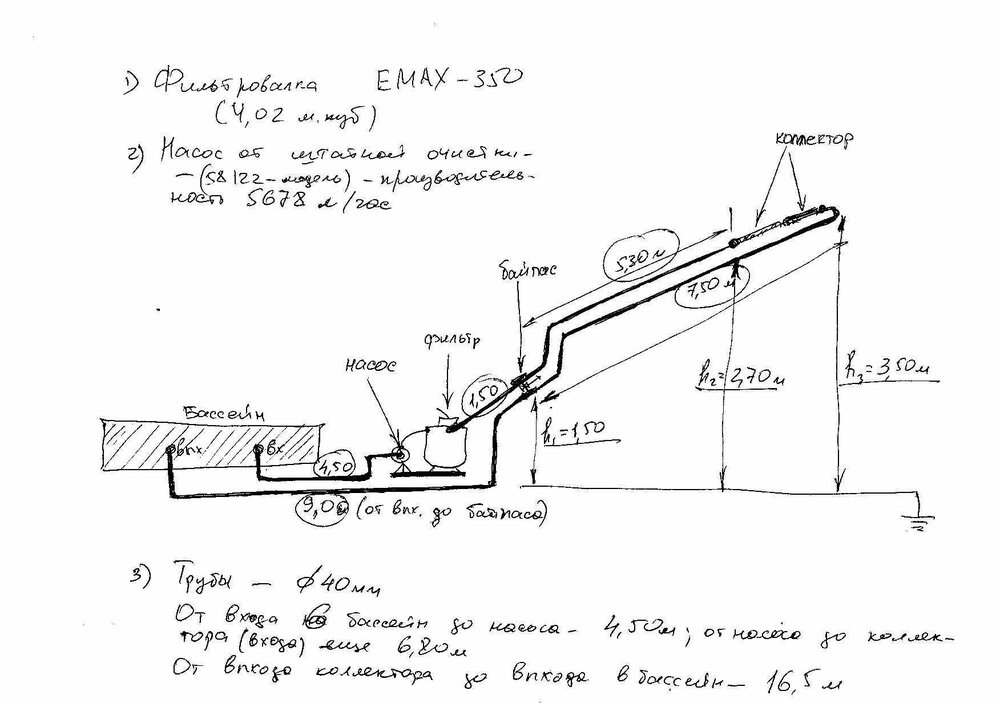 1) Фильтровалка EMAX-350
(4,02 м.куб)
2) Насос от штатной очистки-
-(58122-модель) - производитель-
ность 5678 л/час
коллектор
5,30 м
байпас
7,50 м
фильтр
насос
1,50
h₂=2,70м
h₃=3,50м
Бассейн
h₁=1,50
вых
вх
4,50
9,0м (от вых. до байпаса)
3) Трубы - ϕ40мм
От входа в бассейн до насоса - 4,50м; от насоса до коллек-
тора (входа) еще 6,80м
От выхода коллектора до выхода в бассейн - 16,5 м